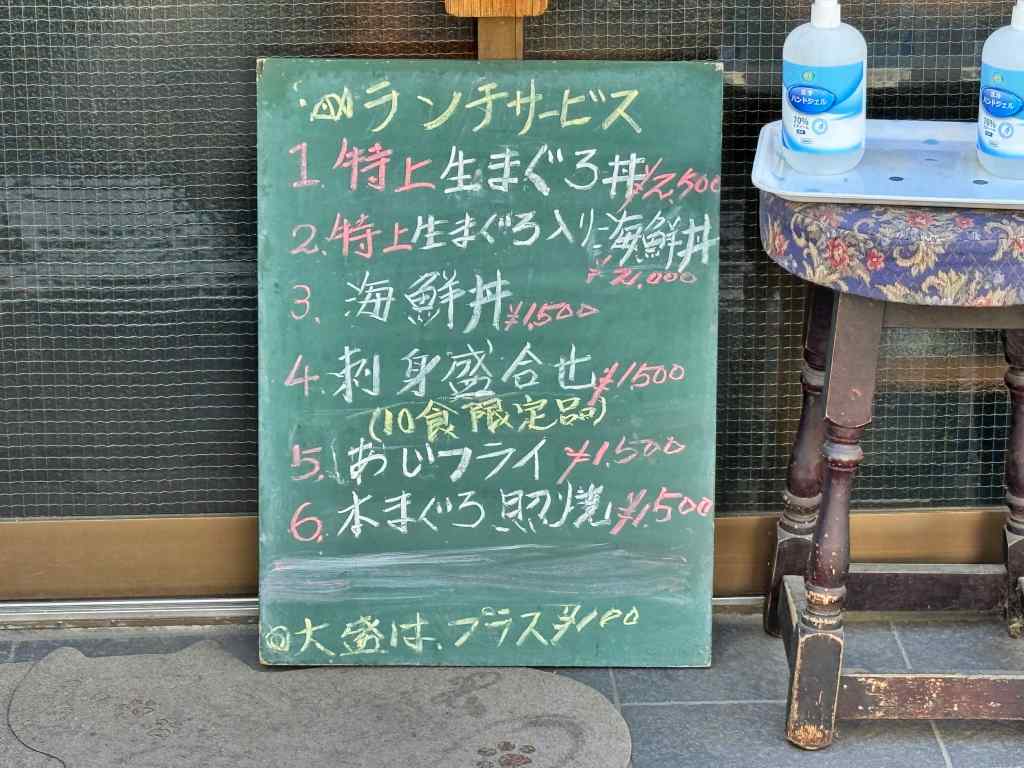 ランチサービス
1. 特上 生まぐろ丼 ¥2,500
2. 特上 生まぐろ入り海鮮丼
¥2,000
3. 海鮮丼 ¥1,500
4. 刺身盛合せ ¥1,500
(10食限定品)
5. あじフライ ¥1,500
6. 本まぐろ照焼 ¥1,500
◎大盛は、プラス¥100
ハンドジェル
70%
ハンドジェル
70%